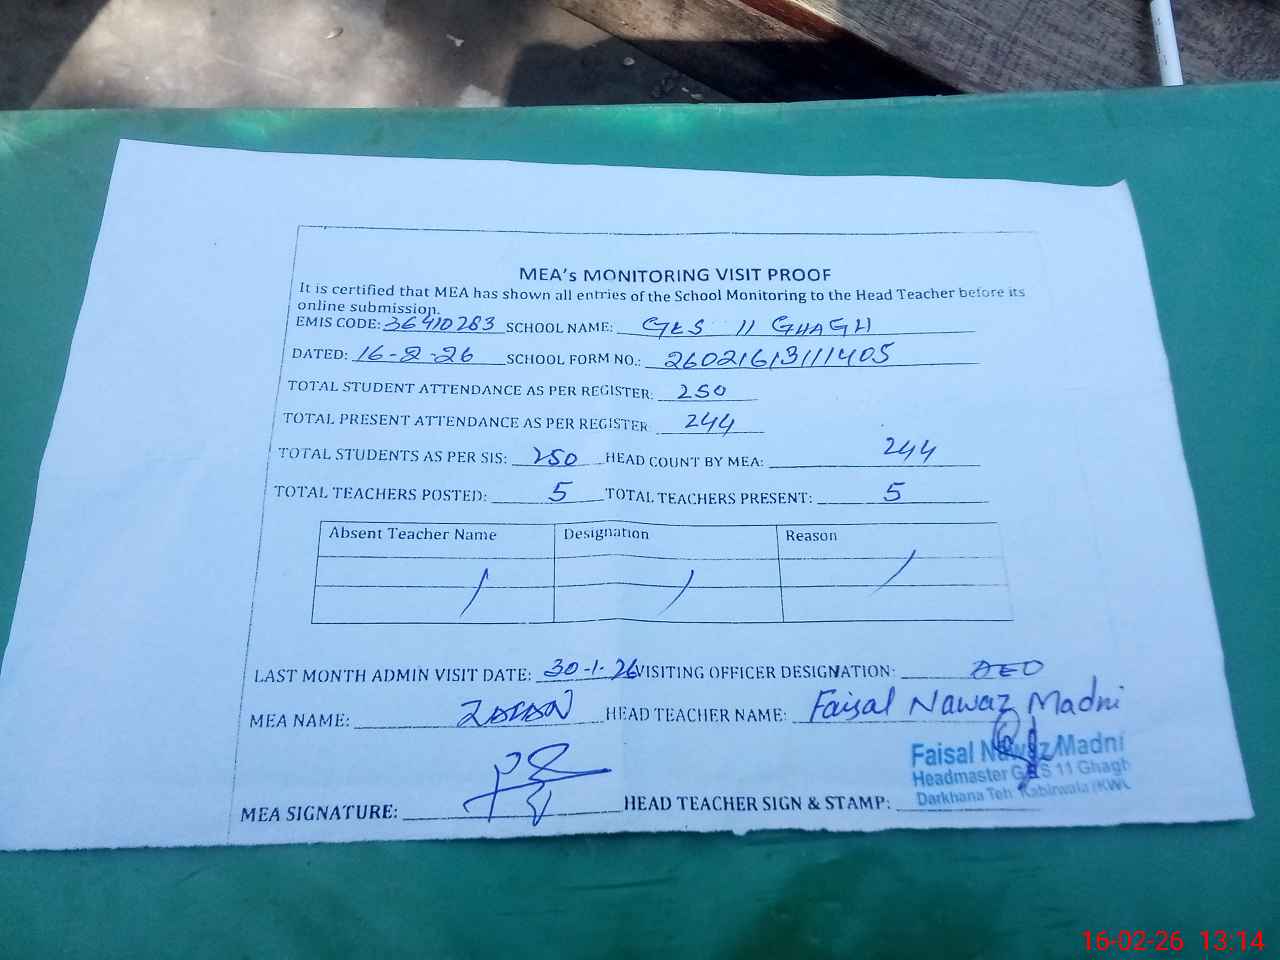 MEA's MONITORING VISIT PROOF
It is certified that MEA has shown all entries of the School Monitoring to the Head Teacher before its
online submission.
EMIS CODE: 36410283 SCHOOL NAME: GES 11 GHAGH
DATED: 16-2-26 SCHOOL FORM NO.: 26021613111405
TOTAL STUDENT ATTENDANCE AS PER REGISTER: 250
TOTAL PRESENT ATTENDANCE AS PER REGISTER 244
TOTAL STUDENTS AS PER SIS: 250 HEAD COUNT BY MEA: 244
TOTAL TEACHERS POSTED: 5 TOTAL TEACHERS PRESENT: 5
Absent Teacher Name Designation Reason
/ / /
LAST MONTH ADMIN VISIT DATE: 30-1-26 VISITING OFFICER DESIGNATION: DEO
MEA NAME: HEAD TEACHER NAME: Faisal Nawaz Madni
Faisal Nawaz Madni
Headmaster GES 11 Ghagh
Darkhana Teh Kabirwala (KWL
MEA SIGNATURE: HEAD TEACHER SIGN & STAMP:
16-02-26 13:14